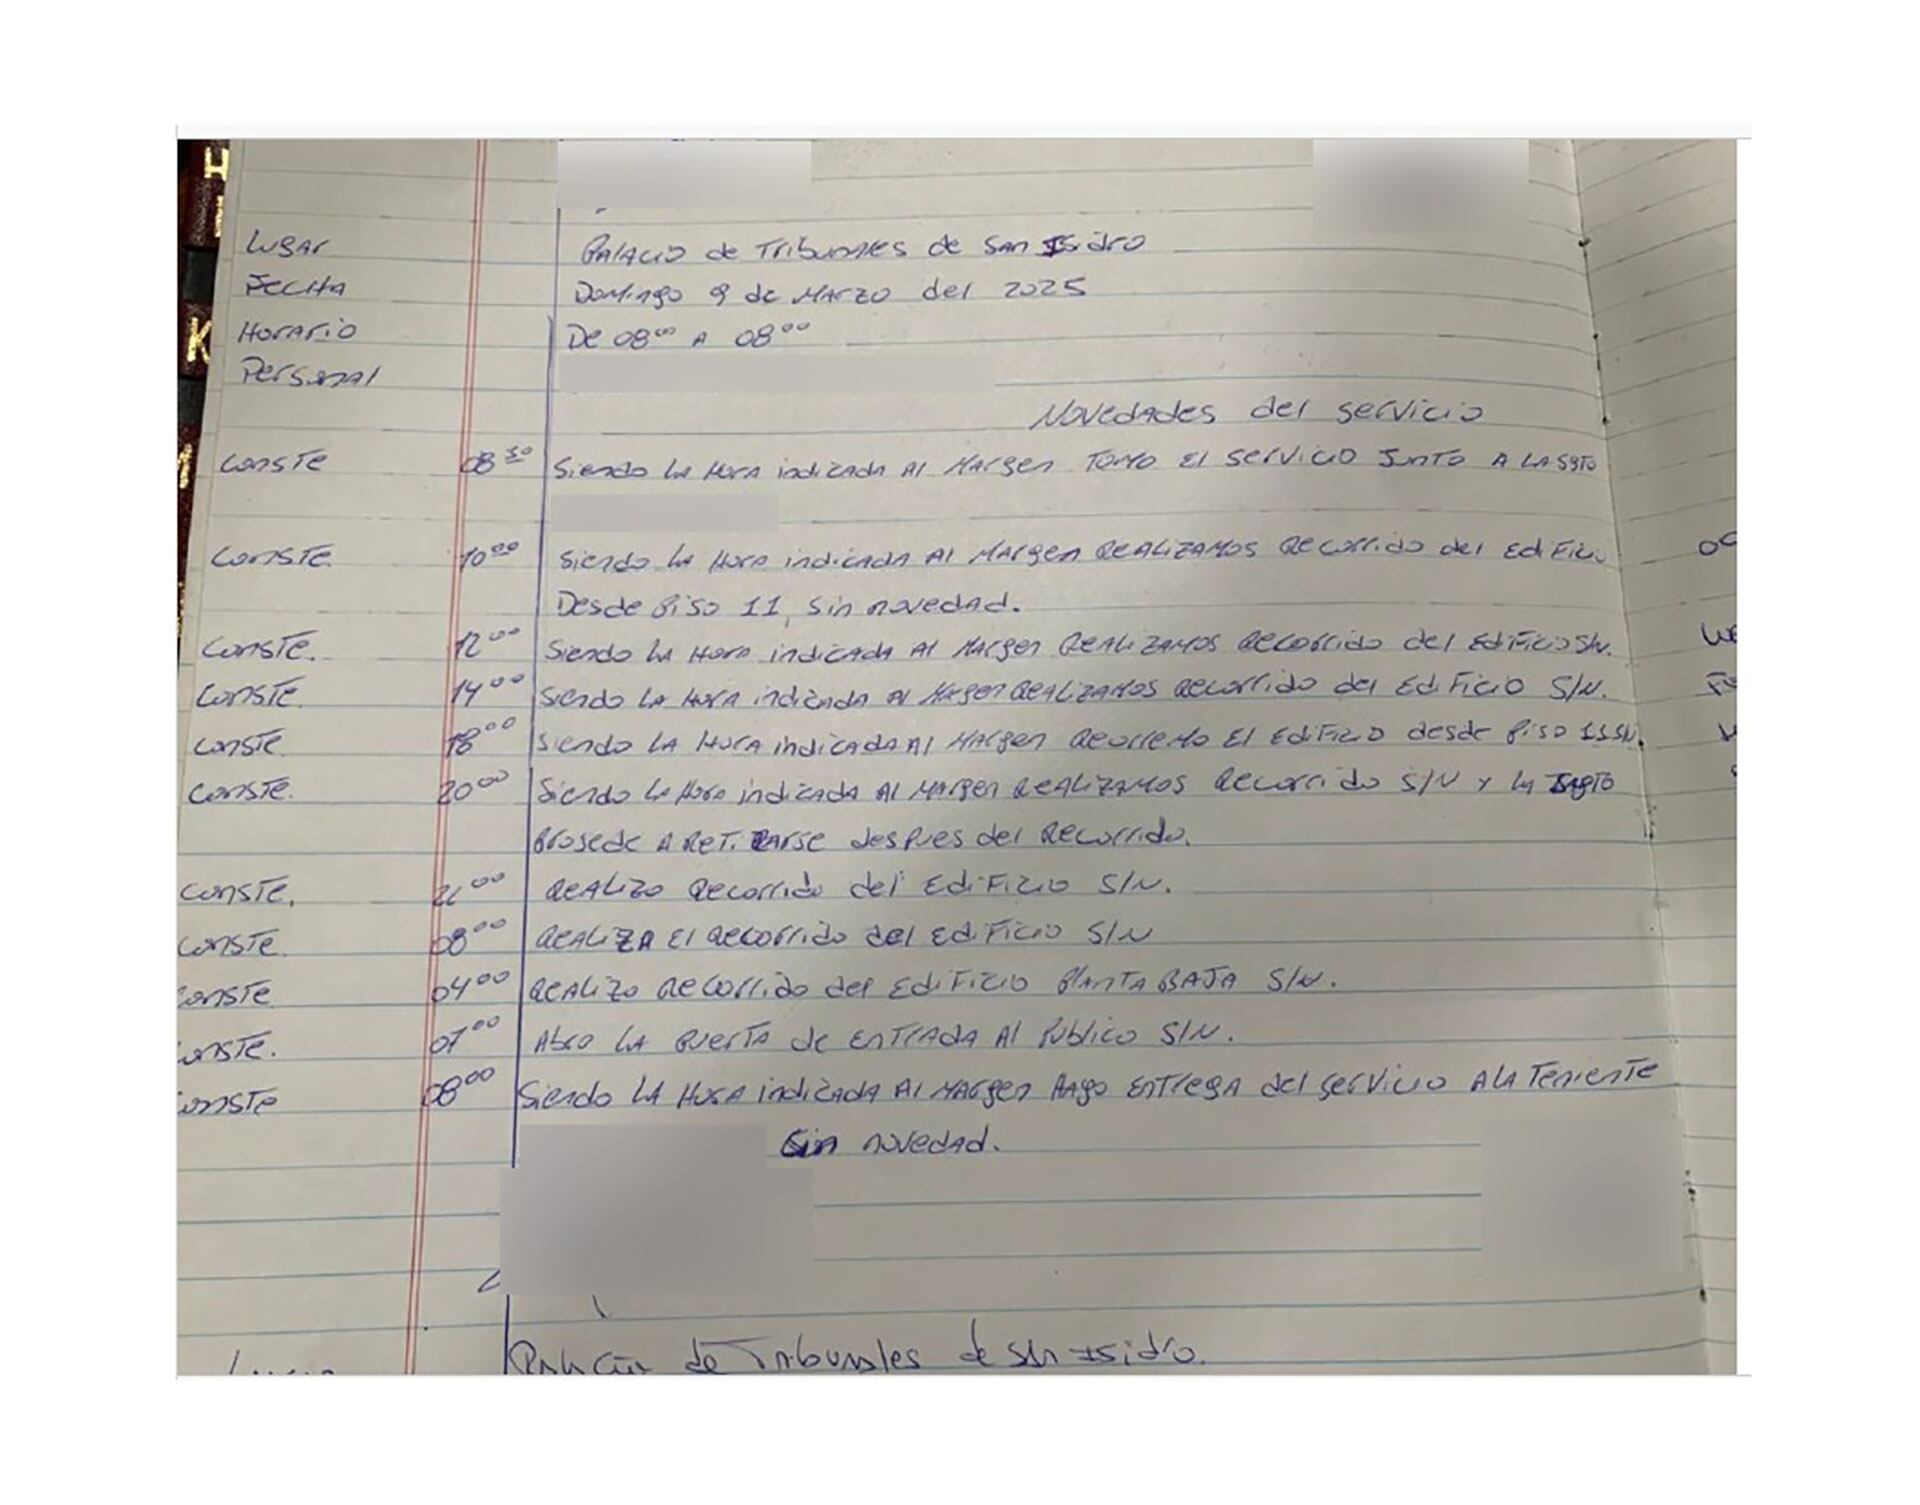 Lugar Palacio de Tribunales de San Isidro
Fecha Domingo 9 de Marzo del 2025
Horario De 08⁰⁰ A 08⁰⁰
Personal
Novedades del servicio
Conste 08³⁰ Siendo La Hora indicada Al Margen Tomo El servicio Junto A LA SGTO
Conste 10⁰⁰ Siendo La Hora indicada Al Margen REALIZAMOS Recorrido del EdiFicio
Desde Piso 11, sin novedad.
Conste. 12⁰⁰ Siendo La Hora indicada Al Margen REALIZAMOS Recorrido del EdiFicio S/N.
Conste. 14⁰⁰ Siendo La Hora indicada Al Margen REALIZAMOS Recorrido del EdiFicio S/N.
Conste. 18⁰⁰ Siendo LA Hora indicada Al Margen Recorremo El EdiFizio desde Piso 11 S/N.
Conste. 20⁰⁰ Siendo La Hora indicada Al Margen REALIZAMOS Recorrido S/N y La SGTO
Prosede A ReTirarse despues del Recorrido.
Conste. 00 REALIZO Recorrido del EdiFizio S/N.
Conste. 08⁰⁰ REALIZA El Recorrido del EdiFicio S/N
onste 04⁰⁰ REALIZO Recorrido del EdiFicio PlANTA BAJA S/N.
onste. 07⁰⁰ Abro LA Puerta de EnTRADA Al Publico S/N.
onste 08⁰⁰ Siendo LA Hora indicada Al Margen Hago EnTrega del servicio A LA Teniente
Sin novedad.
Palacio de Tribunales de San Isidro.